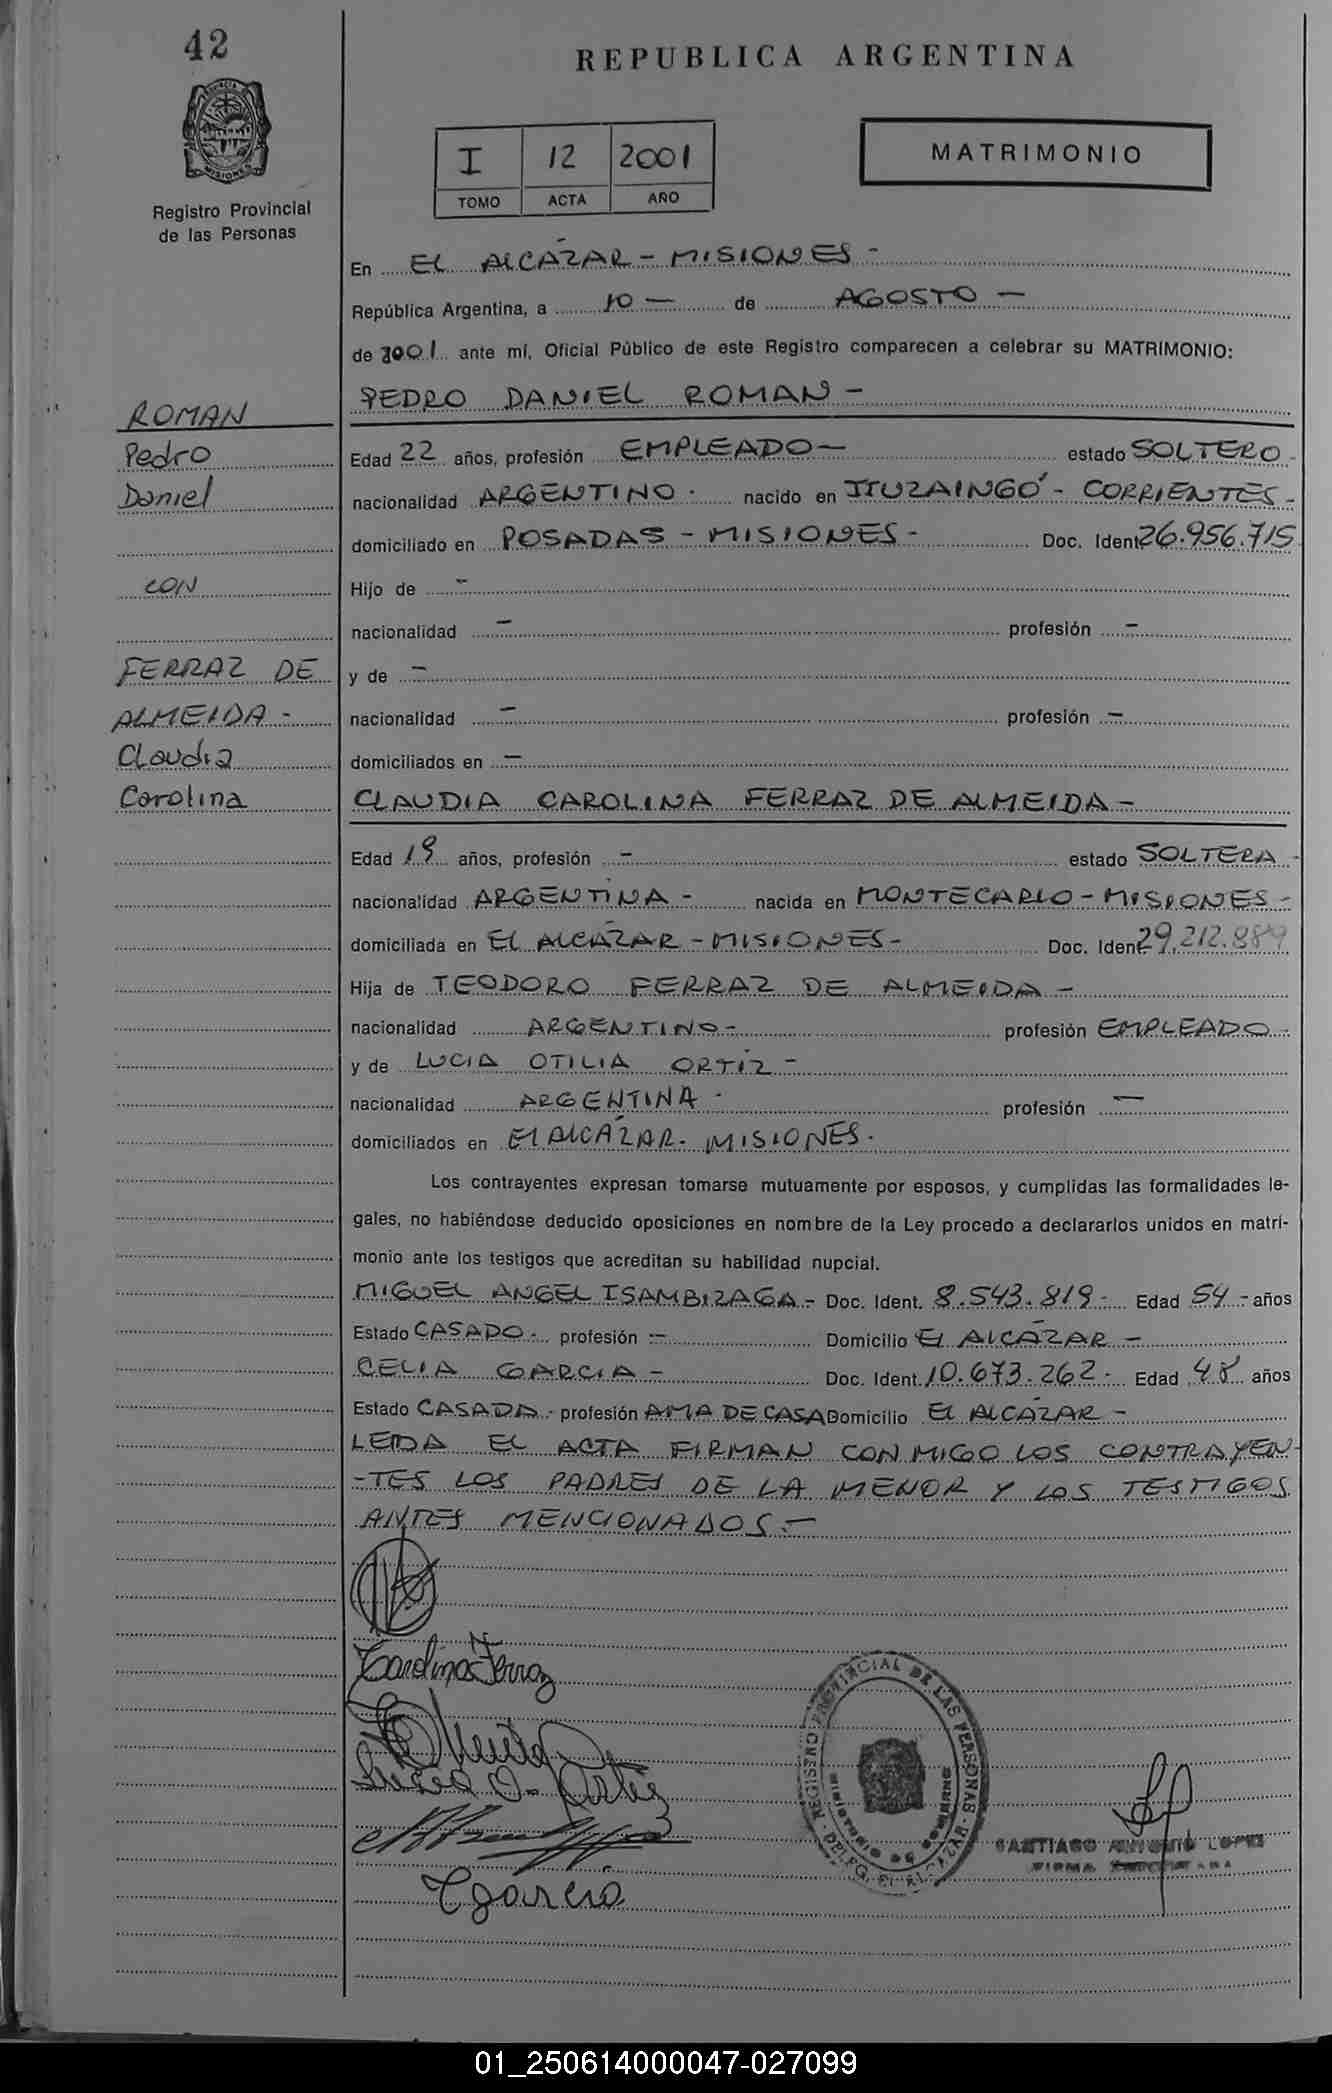 42
REPUBLICA ARGENTINA
I 12 2001
TOMO ACTA AÑO
MATRIMONIO
Registro Provincial
de las Personas
En EL ALCÁZAR - MISIONES -
República Argentina, a 10 - de AGOSTO -
de 2001 ante mí, Oficial Público de este Registro comparecen a celebrar su MATRIMONIO:
ROMAN
Pedro
Daniel
CON
FERRAZ DE
ALMEIDA -
Claudia
Carolina
PEDRO DANIEL ROMAN -
Edad 22 años, profesión EMPLEADO - estado SOLTERO -
nacionalidad ARGENTINO - nacido en ITUZAINGÓ - CORRIENTES -
domiciliado en POSADAS - MISIONES - Doc. Ident. 26.956.715
Hijo de -
nacionalidad - profesión -
y de -
nacionalidad - profesión -
domiciliados en -
CLAUDIA CAROLINA FERRAZ DE ALMEIDA -
Edad 19 años, profesión - estado SOLTERA -
nacionalidad ARGENTINA - nacida en MONTECARLO - MISIONES -
domiciliada en EL ALCÁZAR - MISIONES - Doc. Ident. 29.212.889
Hija de TEODORO FERRAZ DE ALMEIDA -
nacionalidad ARGENTINO - profesión EMPLEADO -
y de LUCIA OTILIA ORTÍZ -
nacionalidad ARGENTINA - profesión -
domiciliados en El ALCÁZAR - MISIONES -
Los contrayentes expresan tomarse mutuamente por esposos, y cumplidas las formalidades le-
gales, no habiéndose deducido oposiciones en nombre de la Ley procedo a declararlos unidos en matri-
monio ante los testigos que acreditan su habilidad nupcial.
MIGUEL ANGEL ISAMBIZAGA - Doc. Ident. 8.543.819 - Edad 54 - años
Estado CASADO - profesión - Domicilio El ALCÁZAR -
CELIA GARCIA - Doc. Ident. 10.673.262 - Edad 48 años
Estado CASADA - profesión AMA DE CASA Domicilio El ALCÁZAR -
LEIDA EL ACTA FIRMAN CONMIGO LOS CONTRAYEN-
-TES LOS PADRES DE LA MENOR Y LOS TESTIGOS
ANTES MENCIONADOS.-
Carolina Ferraz
Lucia O. Ortiz
C garcia
REGISTRO PROVINCIAL DE LAS PERSONAS
MINISTERIO DE GOBIERNO
DELEG. EL ALCAZAR
SANTIAGO ANTONIO LOPEZ
FIRMA
01_250614000047-027099